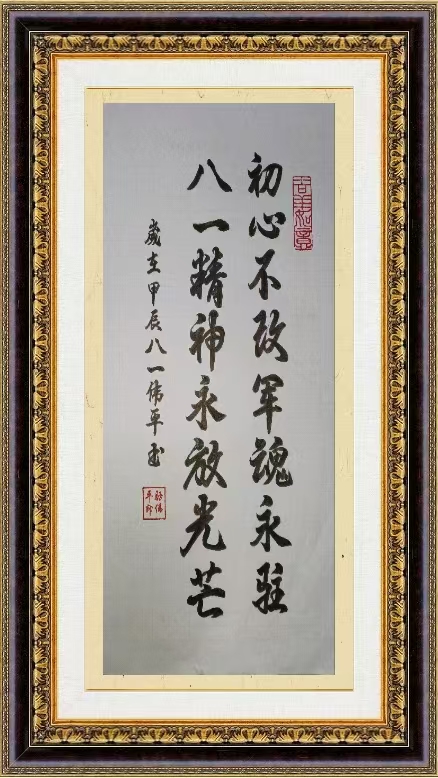 吉羊如意
初心不改军魂永驻
八一精神永放光芒
岁在甲辰八一伟平书